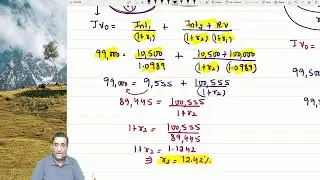 IV₀ = Int₁/(1+r₁) + Int₂ + RV/(1+r₂)(1+r₁)
99,000 = 10,500/1.0989 + 10,500+100,000/(1+r₂)(1.0989)
99,000 = 9,555 + 100,555/(1+r₂)
89,445 = 100,555/1+r₂
1+r₂ = 100,555/89,445
1+r₂ = 1.1242
⇒ r₂ = 12.42%